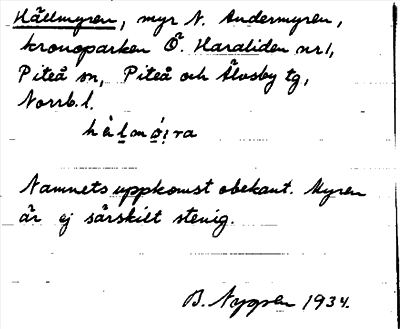 Hällmyren, myr N. Andermyren,
kronoparken Ö. Haraliden nr 1,
Piteå sn, Piteå och Älvsby tg,
Norrb. l.
Namnets uppkomst obekant. Myren
är ej särskilt stenig.
B. Nygren 1934.